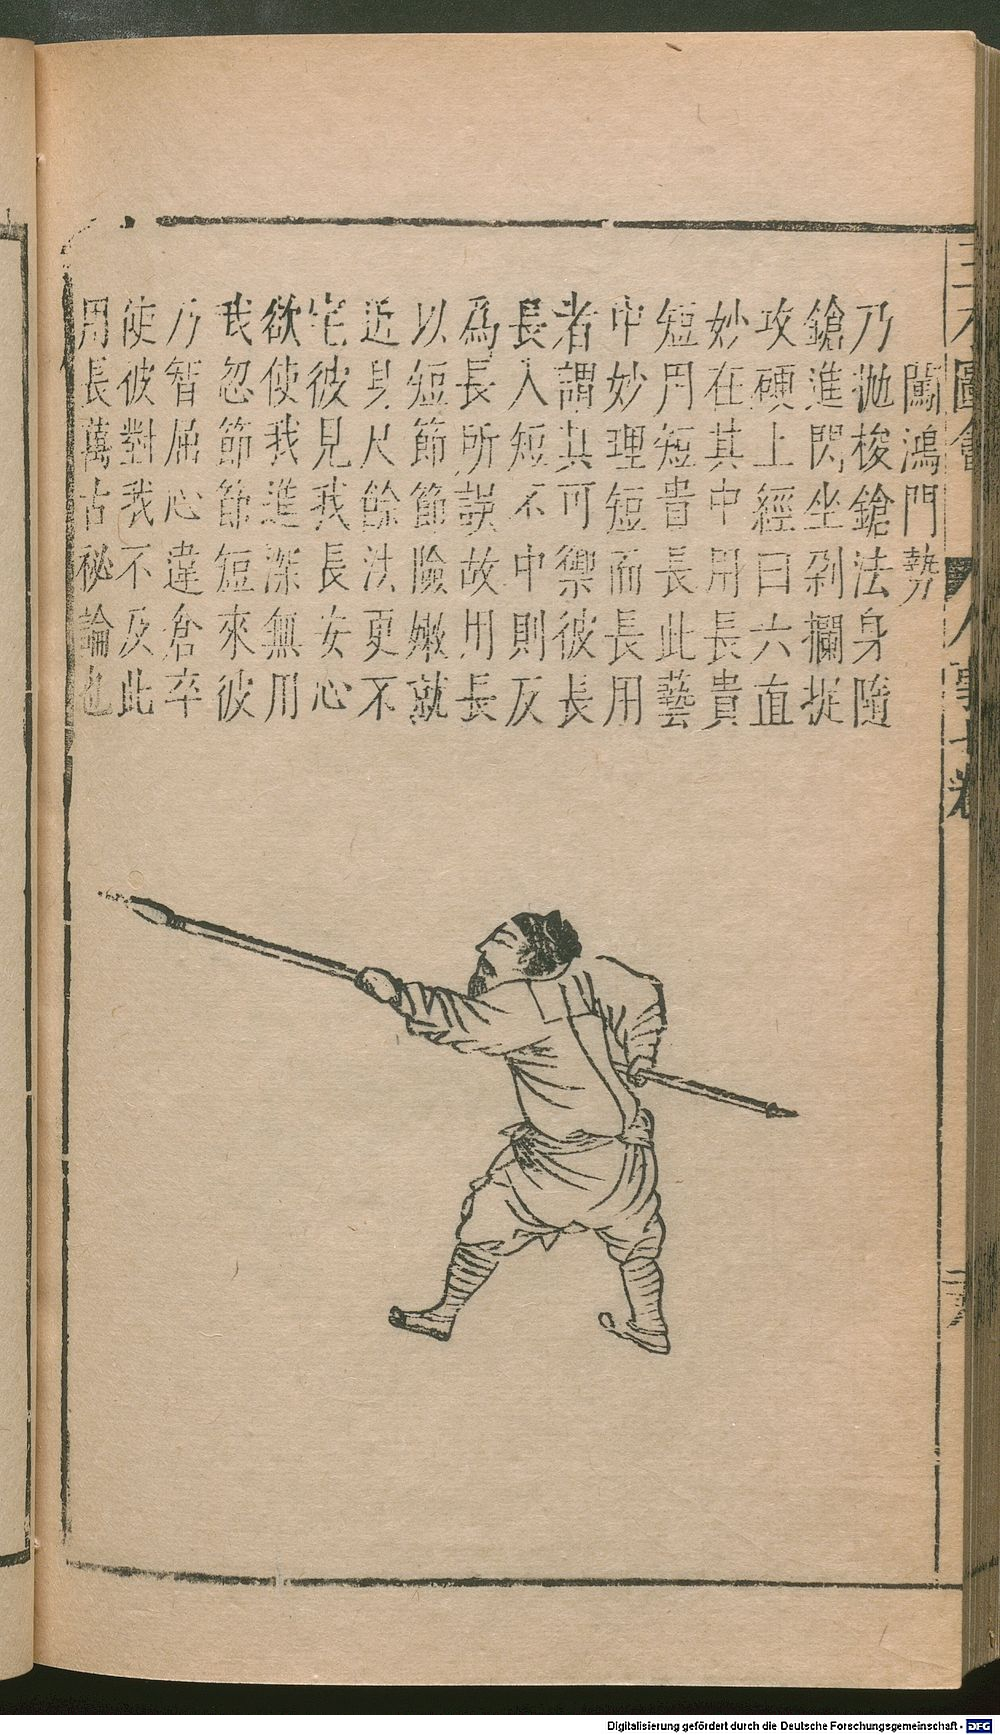 闖鴻門勢
乃拋梭鎗法身隨
鎗進閃坐剁攔捉
攻硬上經曰六直
妙在其中用長貴
短用短貴長此藝
中妙理短而長用
者謂其可禦彼長
長入短不中則反
為長所誤故用長
以短節節險嫩就
近身尺餘法更不
老彼見我長安心
欲使我進深無用
我忽節節短來彼
乃智屈心違倉卒
使彼對我不及此
用長萬古秘論也
圖會
人事七卷
Digitalisierung gefördert durch die Deutsche Forschungsgemeinschaft - DFG